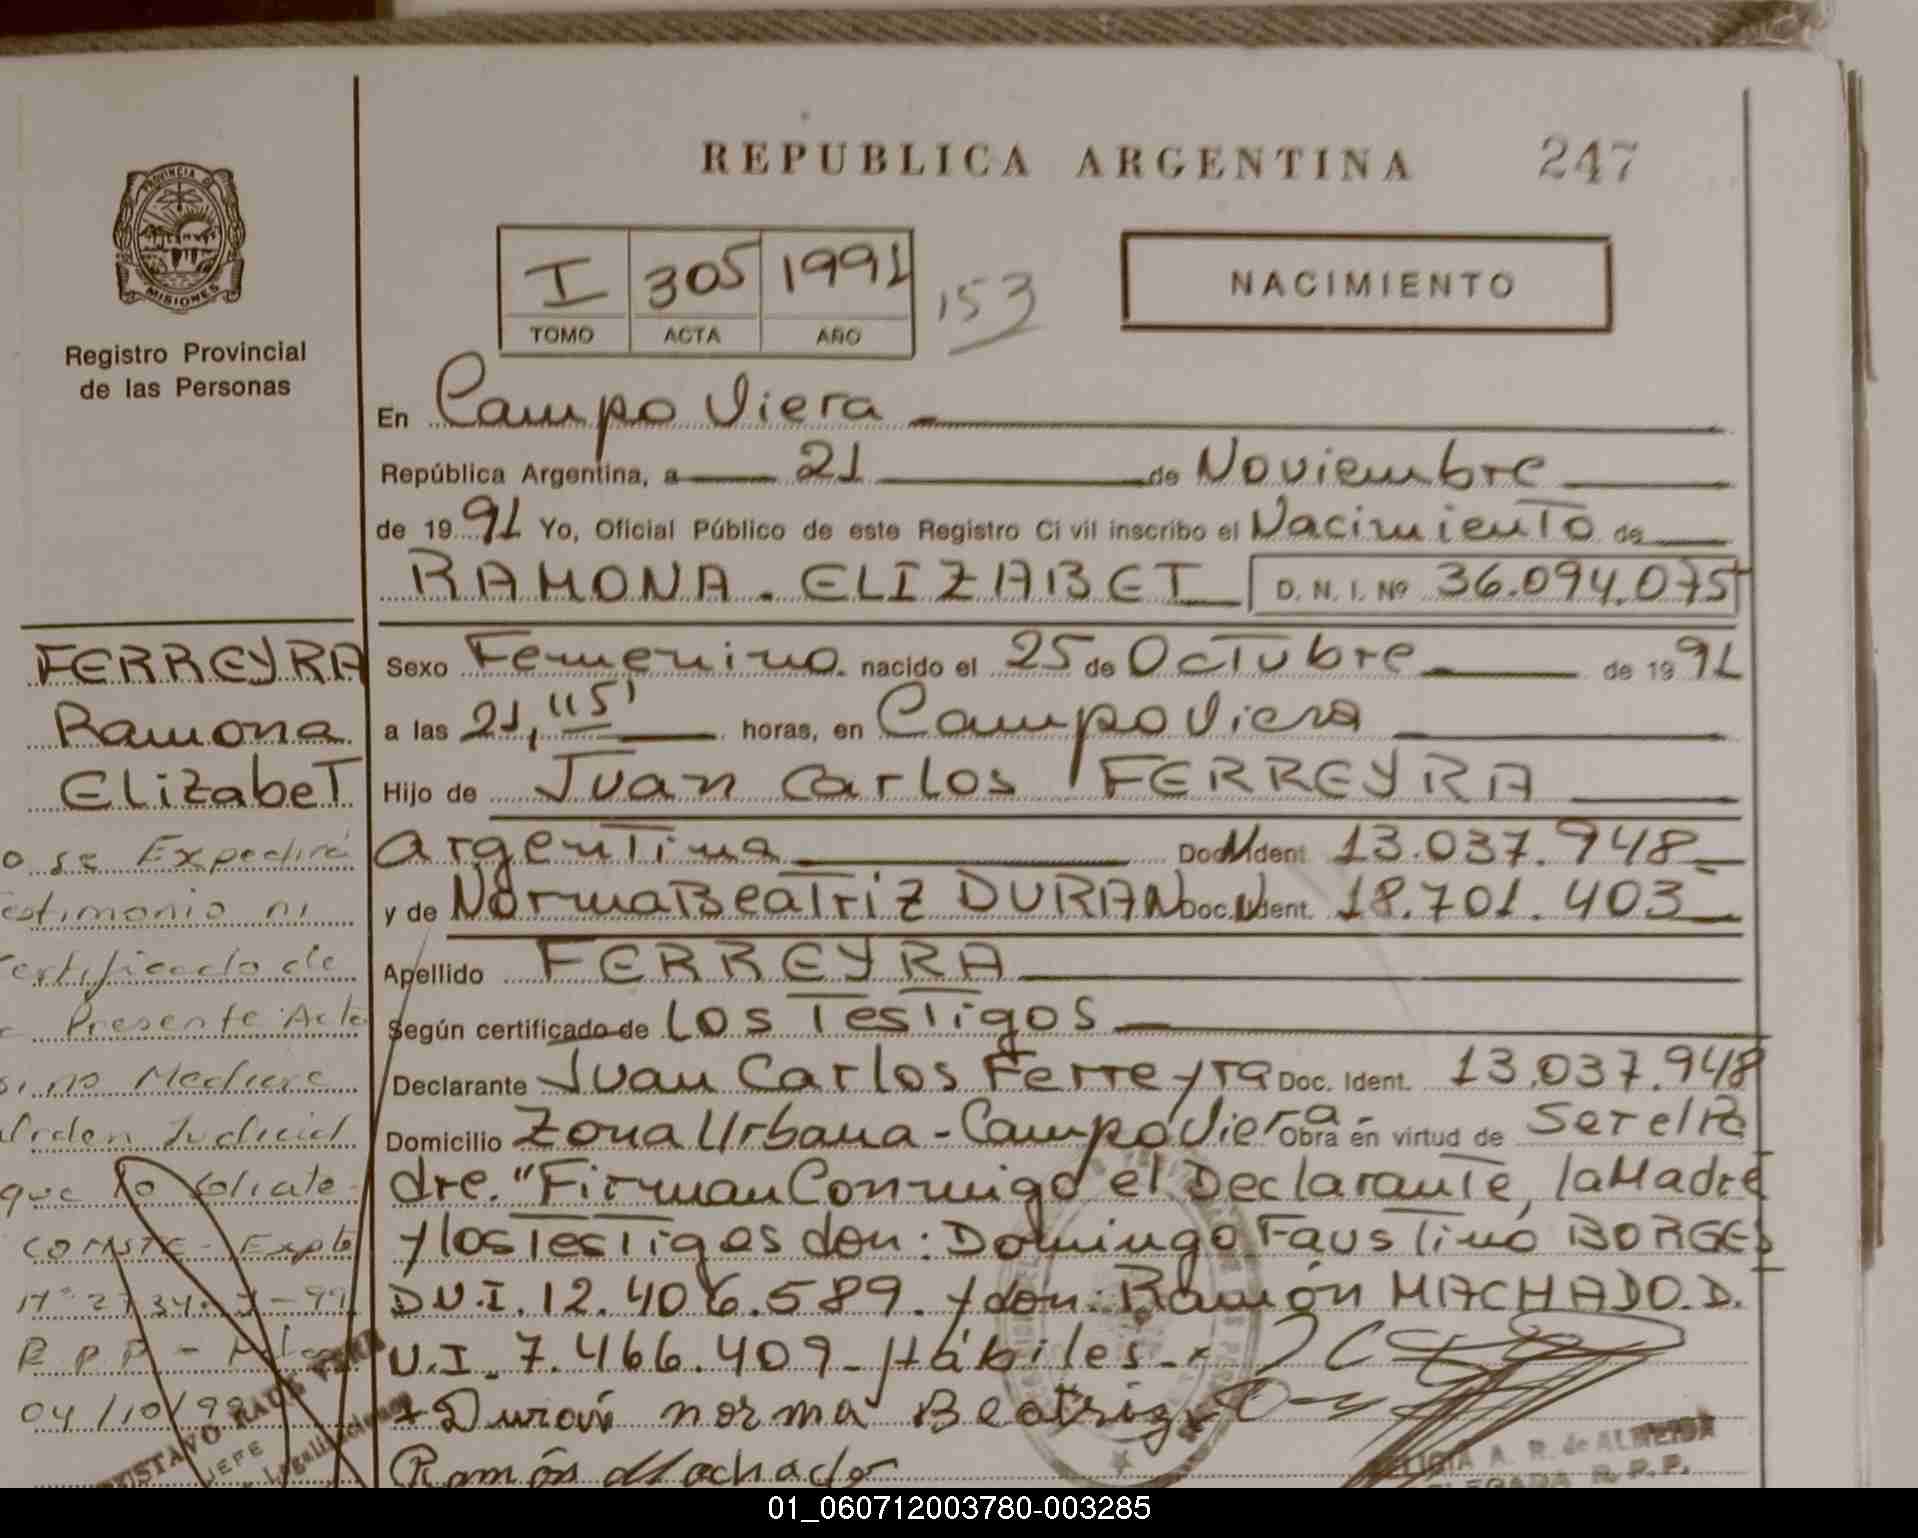 REPUBLICA ARGENTINA 247
PROVINCIA DE
MISIONES
Registro Provincial
de las Personas
I 305 1991 153
TOMO ACTA AÑO
NACIMIENTO
En Campo Viera
República Argentina, a 21 de Noviembre
de 19 91 Yo, Oficial Público de este Registro Civil inscribo el Nacimiento de
RAMONA. ELIZABET D. N. I. Nº 36.094.075
Sexo Femenino. nacido el 25 de Octubre de 19 91
a las 21, "15' horas, en Campo Viera
Hijo de Juan Carlos FERREYRA
Argentina Doc. Ident. 13.037.948
y de Norma Beatriz DURAN Doc. Ident. 18.701.403
Apellido FERREYRA
Según certificado de Los Testigos
Declarante Juan Carlos Ferreyra Doc. Ident. 13.037.948
Domicilio Zona Urbana - Campo Viera - Obra en virtud de Ser el Pa
dre. "Firman Conmigo el Declarante, la Madre
y los Testigos don: Domingo Faustino BORGES
D.N.I. 12.406.589. y don: Ramón MACHADO. D.
N.I. 7.466.409 - Hábiles -
+ Durán norma Beatriz
Ramón Machado
FERREYRA
Ramona
Elizabet
o se Expedirá
estimonio ni
ertificado de
Presente Acta
si no Mediare
Orden Judicial
que lo solicite -
CONSTE - Expte
R P P -
04/10/99
JEFE
Legalizaciones
A. R. de ALMEIDA
R. P. P.
01_060712003780-003285